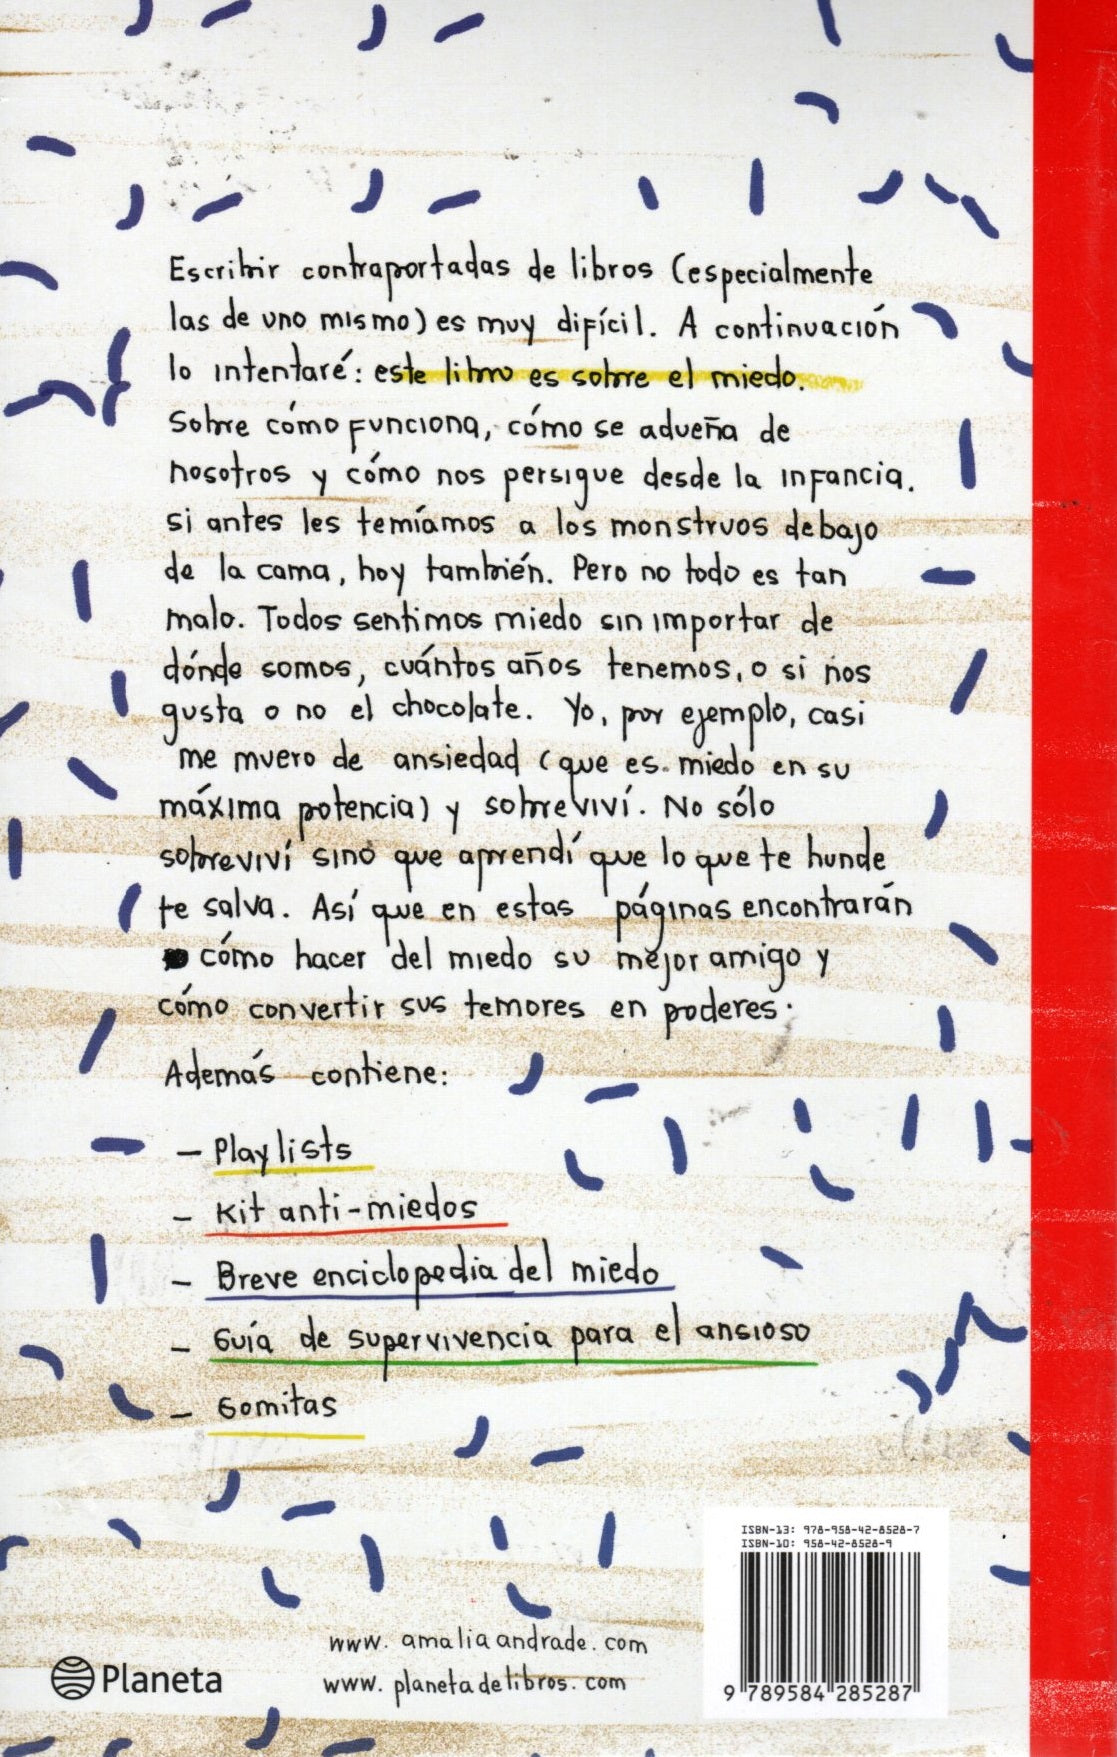 Escribir contraportadas de libros (especialmente
las de uno mismo) es muy difícil. A continuación
lo intentaré: este libro es sobre el miedo.
Sobre cómo funciona, cómo se adueña de
nosotros y cómo nos persigue desde la infancia.
si antes les temíamos a los monstruos debajo
de la cama, hoy también. Pero no todo es tan
malo. Todos sentimos miedo sin importar de
dónde somos, cuántos años tenemos, o si nos
gusta o no el chocolate. Yo, por ejemplo, casi
me muero de ansiedad (que es miedo en su
máxima potencia) y sobreviví. No sólo
sobreviví sino que aprendí que lo que te hunde
te salva. Así que en estas páginas encontrarán
cómo hacer del miedo su mejor amigo y
cómo convertir sus temores en poderes.
Además contiene:
- Playlists
- Kit anti-miedos
- Breve enciclopedia del miedo
- Guía de supervivencia para el ansioso
- Gomitas
ISBN-13: 978-958-42-8528-7
ISBN-10: 958-42-8528-9
9 789584 285287
www.amaliaandrade.com
www.planetadelibros.com
Planeta